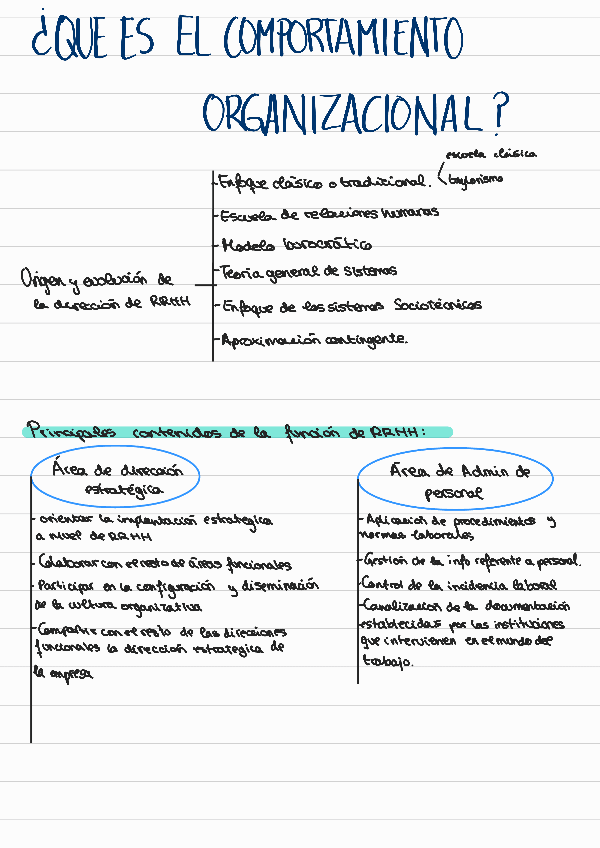 ¿QUE ES EL COMPORTAMIENTO
ORGANIZACIONAL?
Origen y evolución de
la dirección de RRHH
-Enfoque clásico o tradicional.
escuela clásica
taylorismo
-Escuela de relaciones humanas
-Modelo burocrático
-Teoría general de sistemas
-Enfoque de los sistemas Sociotécnicos
-Aproximación contingente.
Principales contenidos de la función de RRHH:
Área de dirección
estratégica
-orientar la implantación estrategica
a nivel de RRHH
-Colaborar con el resto de áreas funcionales
-Participar en la configuración y diseminación
de la cultura organizativa
-Compartir con el resto de las direcciones
funcionales la dirección estrategica de
la empresa
Área de Admin de
personal
-Aplicación de procedimientos y
normas laborales
-Gestión de la info referente a personal.
-Control de la incidencia laboral
-Canalización de la documentación
establecidas por las instituciones
que intervienen en el mundo del
trabajo.